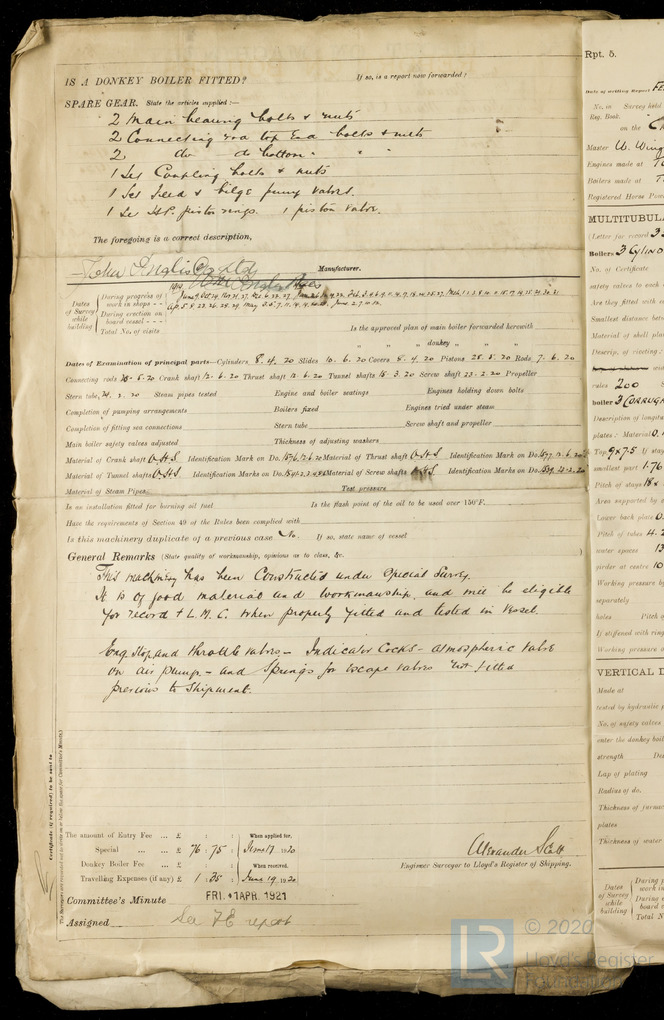 IS A DONKEY BOILER FITTED? If so, is a report now forwarded?
SPARE GEAR. State the articles supplied:—
2 Main bearing bolts & nuts
2 Connecting rod top End bolts & nuts
2 do do bottom " "
1 Set Coupling bolts & nuts
1 Set feed & bilge pump valves.
1 Set H.P. piston rings. 1 piston valve.
The foregoing is a correct description,
John Inglis Co Ltd Manufacturer.
Dates of Survey while building
During progress of work in shops - -
During erection on board vessel - - -
Total No. of visits
Is the approved plan of main boiler forwarded herewith
" " " donkey " " "
Dates of Examination of principal parts—Cylinders 8.4.20 Slides 10.6.20 Covers 8.4.20 Pistons 28.5.20 Rods 7.6.20
Connecting rods 28.5.20 Crank shaft 12.6.20 Thrust shaft 12.6.20 Tunnel shafts 15.3.20 Screw shaft 23.2.20 Propeller
Stern tube 24.2.20 Steam pipes tested Engine and boiler seatings Engines holding down bolts
Completion of pumping arrangements Boilers fixed Engines tried under steam
Completion of fitting sea connections Stern tube Screw shaft and propeller
Main boiler safety valves adjusted Thickness of adjusting washers
Material of Crank shaft O.H.S Identification Mark on Do. Material of Thrust shaft O.H.S Identification Mark on Do.
Material of Tunnel shafts O.H.S Identification Marks on Do. Material of Screw shafts O.H.S Identification Marks on Do.
Material of Steam Pipes Test pressure
Is an installation fitted for burning oil fuel Is the flash point of the oil to be used over 150°F.
Have the requirements of Section 49 of the Rules been complied with
Is this machinery duplicate of a previous case No. If so, state name of vessel
General Remarks (State quality of workmanship, opinions as to class, &c.
This machinery has been Constructed under Special Survey.
It is of good material and workmanship, and will be eligible
for record + L.M.C. when properly fitted and tested in vessel.
Eng. Stop and throttle valves – Indicator Cocks – atmospheric valve
on air pump – and Springs for Escape valves not fitted
previous to Shipment.
Certificate (if required) to be sent to
The amount of Entry Fee ... £ : : When applied for,
Special ... ... £ 76 : 75 : June 17 1920
Donkey Boiler Fee ... £ : : When received,
Travelling Expenses (if any) £ 1 : 25 : June 19 1920
Alexander Scott
Engineer Surveyor to Lloyd's Register of Shipping.
Committee's Minute FRI. 1 APR. 1921
Assigned See F.E. report
Rpt. 5.
Date of writing Report
No. in Survey held
Reg. Book.
on the
Master W. Wing
Engines made at
Boilers made at
Registered Horse Power
MULTITUBULA
(Letter for record
Boilers 3 Cylind
No. of Certificate
safety valves to each
Are they fitted with
Smallest distance bet
Material of shell pla
Descrip. of riveting:
rules 200
boiler 3 Corrug
Description of longitu
plates: Material
Top
smallest part 1.76
Pitch of stays
Area supported by
Lower back plate
Pitch of tubes
water spaces
girder at centre 10
Working pressure by
separately
holes Pitch of
If stiffened with ring
Working pressure
VERTICAL D
Made at
tested by hydraulic p
No. of safety valves
enter the donkey boil
strength
Lap of plating
Radius of do.
Thickness of furnac
plates
Thickness of water
Dates of Survey while building
During
work in
During
board
Total N
© 2020
LR
Lloyd's Register
Foundation